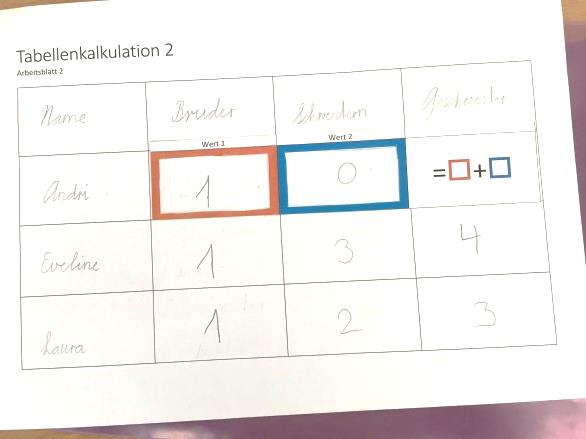 Tabellenkalkulation 2
Arbeitsblatt 2
Name Bruder Schwestern Geschwister
Wert 1 Wert 2
Andri 1 0 = + 
Eveline 1 3 4
Laura 1 2 3